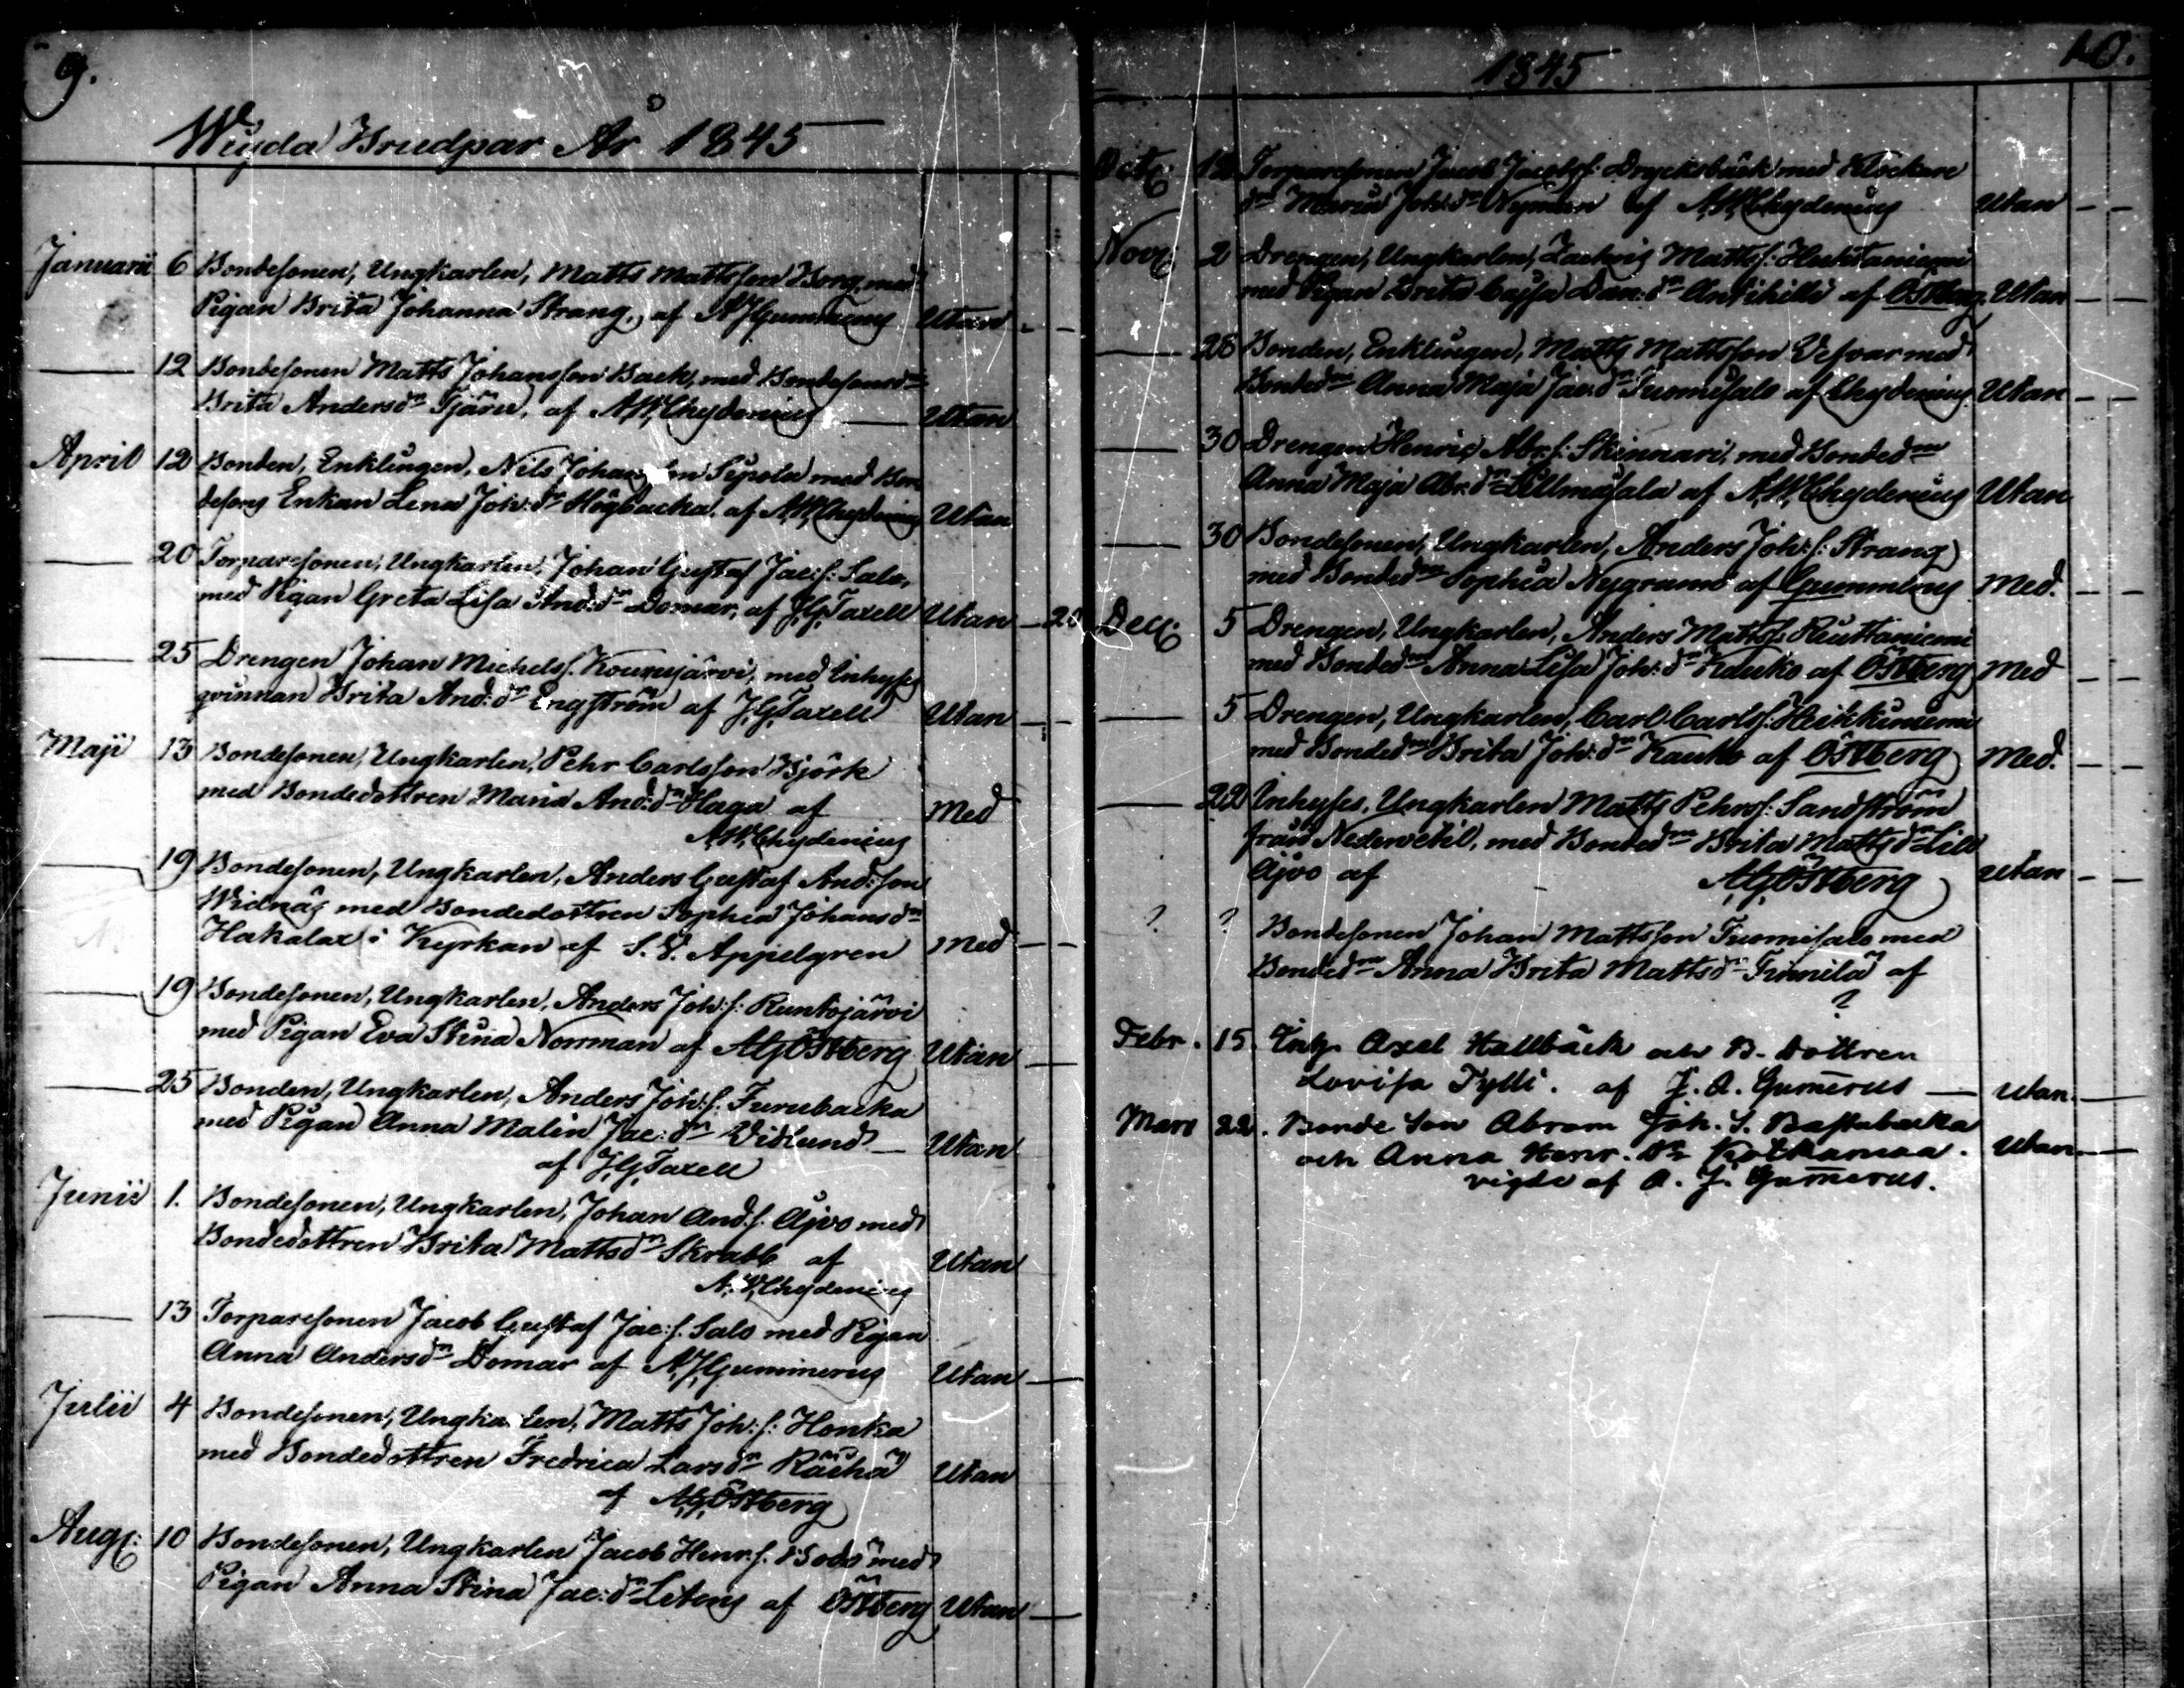 9.
Wigda Brudpar År 1845
Januarii 6 Bondesonen, Ungkarlen, Matts Mattsson Borg, med
Pigan Brita Johanna Strang, af A.J.Gummerus Utan - -
— 12 Bondesonen Matts Johansson Back, med Bondesonsdn
Brita Andersdn Tjäru, af A.W.Chydenius — Utan
April 12 Bonden, Enklingen, Nils Sipola med Bon
desons Enkan Lena Joh:dn Högbacka, af A.W.Chydenius Utan
— 20 Torparesonen, Ungkarlen, Johan Gustaf Jac:s: Salo,
med Pigan Greta Lisa And:dn Domar, af J.G.Taxell Utan — 20
— 25 Drengen Johan Michelss. med Inhyses
qvinnan Brita And:dn Engström af J.G.Taxell Utan — -
Maji 13 Bondesonen, Ungkarlen, Pehr Carlsson Björk
med Bondedottren Maria And:dn Haga af Med
A.W.Chydenius
— 19 Bondesonen, Ungkarlen, Anders Gustaf And:son
Widnäs med Bondedottren Sophia Johansdn
Hakalax i Kyrkan af S. E. Appelgren Med — -
— 19 Bondesonen, Ungkarlen, Anders Joh:s: Runtojärvi
med Pigan Eva Stina Norrman af A.G.Östberg Utan —
— 25 Bonden, Ungkarlen, Anders Joh:s. Furubacka
med Pigan Anna Malin Jac:dn Vidlund — Utan
af J.G.Taxell
Junii 1. Bondesonen, Ungkarlen, Johan And.s. Ajvo med
Bondedottren Brita Mattsdn Skrabb af Utan
A.W.Chydenius
— 13 Torparesonen Jacob Gustaf Jac:s. Salo med Pigan
Anna Andersdn Domar af A.J.Gummerus Utan —
Julii 4 Bondesonen, Ungkarlen, Matts Joh:s: Honka
med Bondedottren Fredrica Larsdn Räihä Utan
af A.G.Östberg
Aug: 10 Bondesonen, Ungkarlen Jacob Henr.s. Bodö med
Pigan Anna Stina Jac:dn Litens af Östberg Utan —
1845 10.
Oct: 12 Torparesonen Jacob Jacobss: Drycksbäck med Klockare
dn Maria Joh:dn Nyman af A.W.Chydenius Utan — —
Nov: 2 Drengen, Ungkarlen, Zachris Mattss: Huhtaniemi
med Pigan Brita Cajsa Dan:dn Anttihilli af Östberg. Utan — —
— 28 Bonden, Enklingen, Matts Mattsson Vefvar med
Bondedn Anna Maja Jac.dn Tuomisalo af Chydenius. Utan — —
— 30 Drengen Henric Abr.s: Skinnari, med Bondedn
Anna Maja Abr.dn Lillmäsala af A.W.Chydenius Utan
— 30 Bondesonen, Ungkarlen, Anders Joh:s: Strang
med Bondedn Sophia Nygrann af Gummerus Med. — —
Dec: 5 Drengen, Ungkarlen, Anders Mattss. Ruuttaniemi
med Bondedn Anna Lisa Joh:dn Kauko af Östberg Med — —
— 5 Drengen, Ungkarlen, Carl Carlss. Heikkiniemi
med Bondedn Brita Joh:dn Kautto af Östberg Med. — —
— 22 Inhyses, Ungkarlen Matts Pehrss: Sandström
från Nedervetil, med Bondedn Brita Mattsdn Lill
Ajvo af A.G.Östberg Utan — —
? ? Bondesonen Johan Mattsson Tuomisalo med
Bondedn Anna Brita Mattsdn Finnilä af
?
Febr. 15. Inh. Axel Hallbäck och B. Dottren
Lovisa Tylli. af J. A. Gumerus — utan. —
Mars 22. Bonde Son Abram Joh. S. Bastubacka
och Anna Henr. Dr Kotkamaa. utan. —
vigde af A. J. Gumerus.